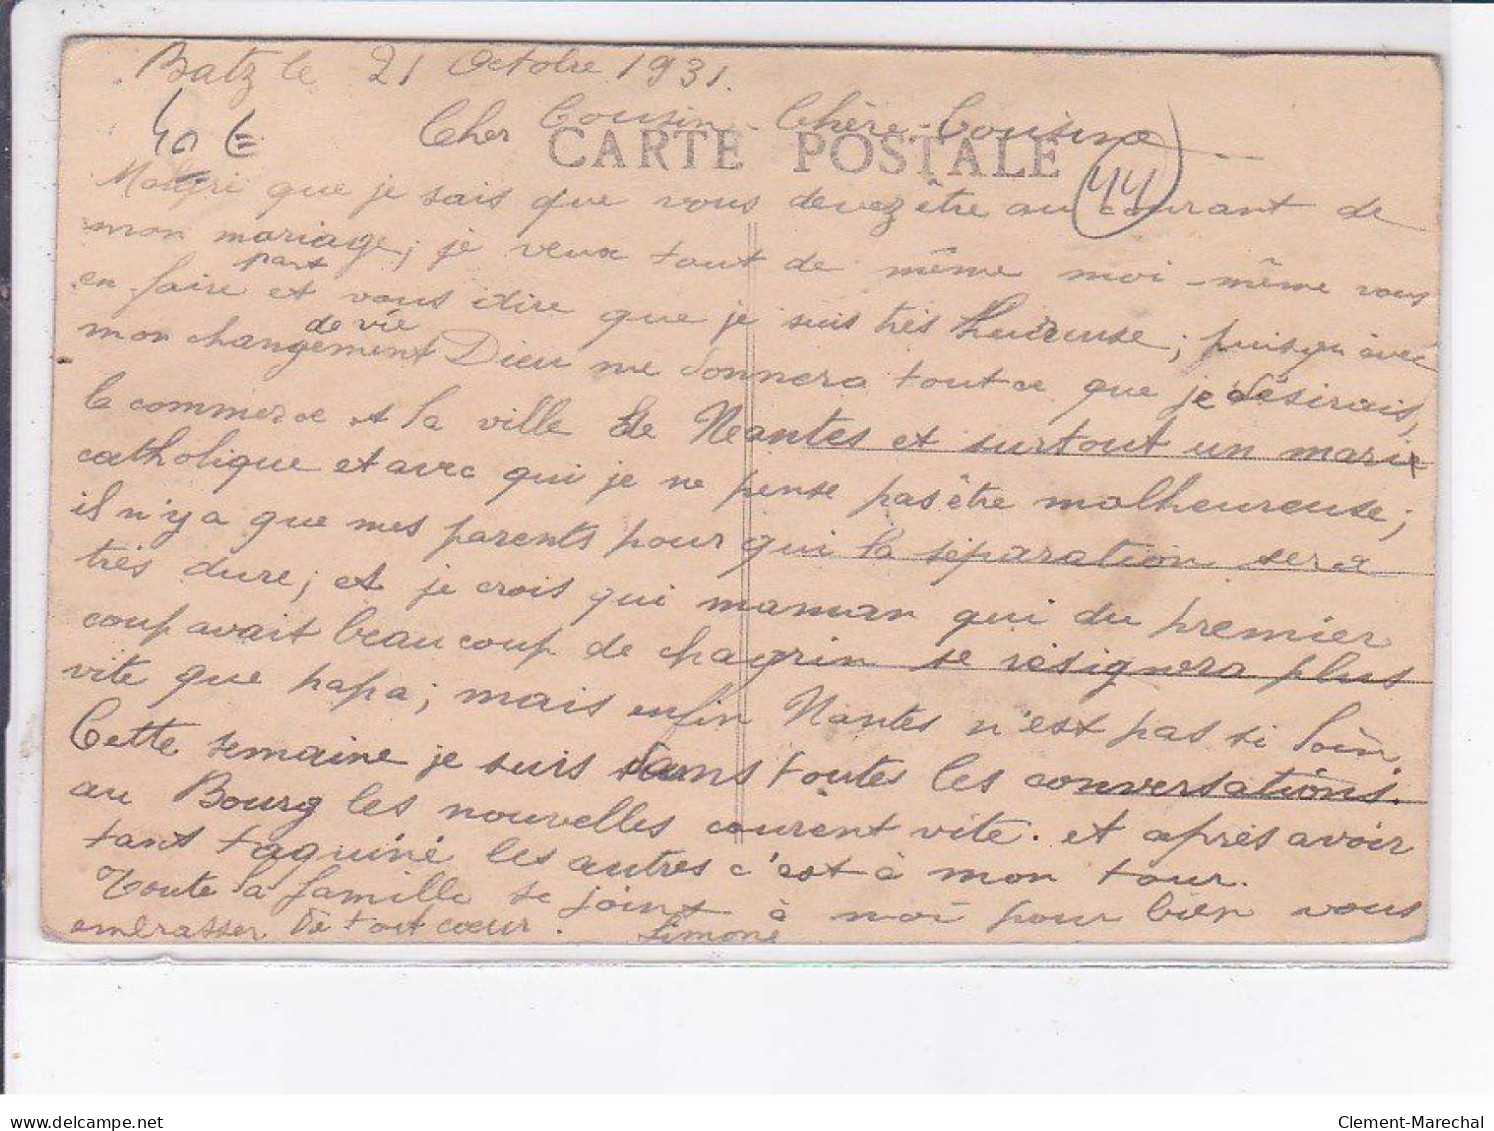 Batz le 21 Octobre 1931.
40 €
Cher Cousin - Chère Cousine
CARTE POSTALE
44
Malgré que je sais que vous devez être au courant de
mon mariage; je veux tout de même moi-même vous
en faire part et vous dire que je suis très heureuse; puisqu'avec
mon changement de vie Dieu me donnera tout ce que je désirais,
le commerce et la ville de Nantes et surtout un mari
catholique et avec qui je ne pense pas être malheureuse;
il n'y a que mes parents pour qui la séparation sera
très dure; et je crois qui maman qui du premier
coup avait beaucoup de chagrin se résignera plus
vite que papa; mais enfin Nantes n'est pas si loin.
Cette semaine je suis dans toutes les conversations.
au Bourg les nouvelles courent vite. et après avoir
tant taquiné les autres c'est à mon tour.
Toute la famille se joint à moi pour bien vous
embrasser de tout coeur. Simone
www.delcampe.net
Clement-Marechal